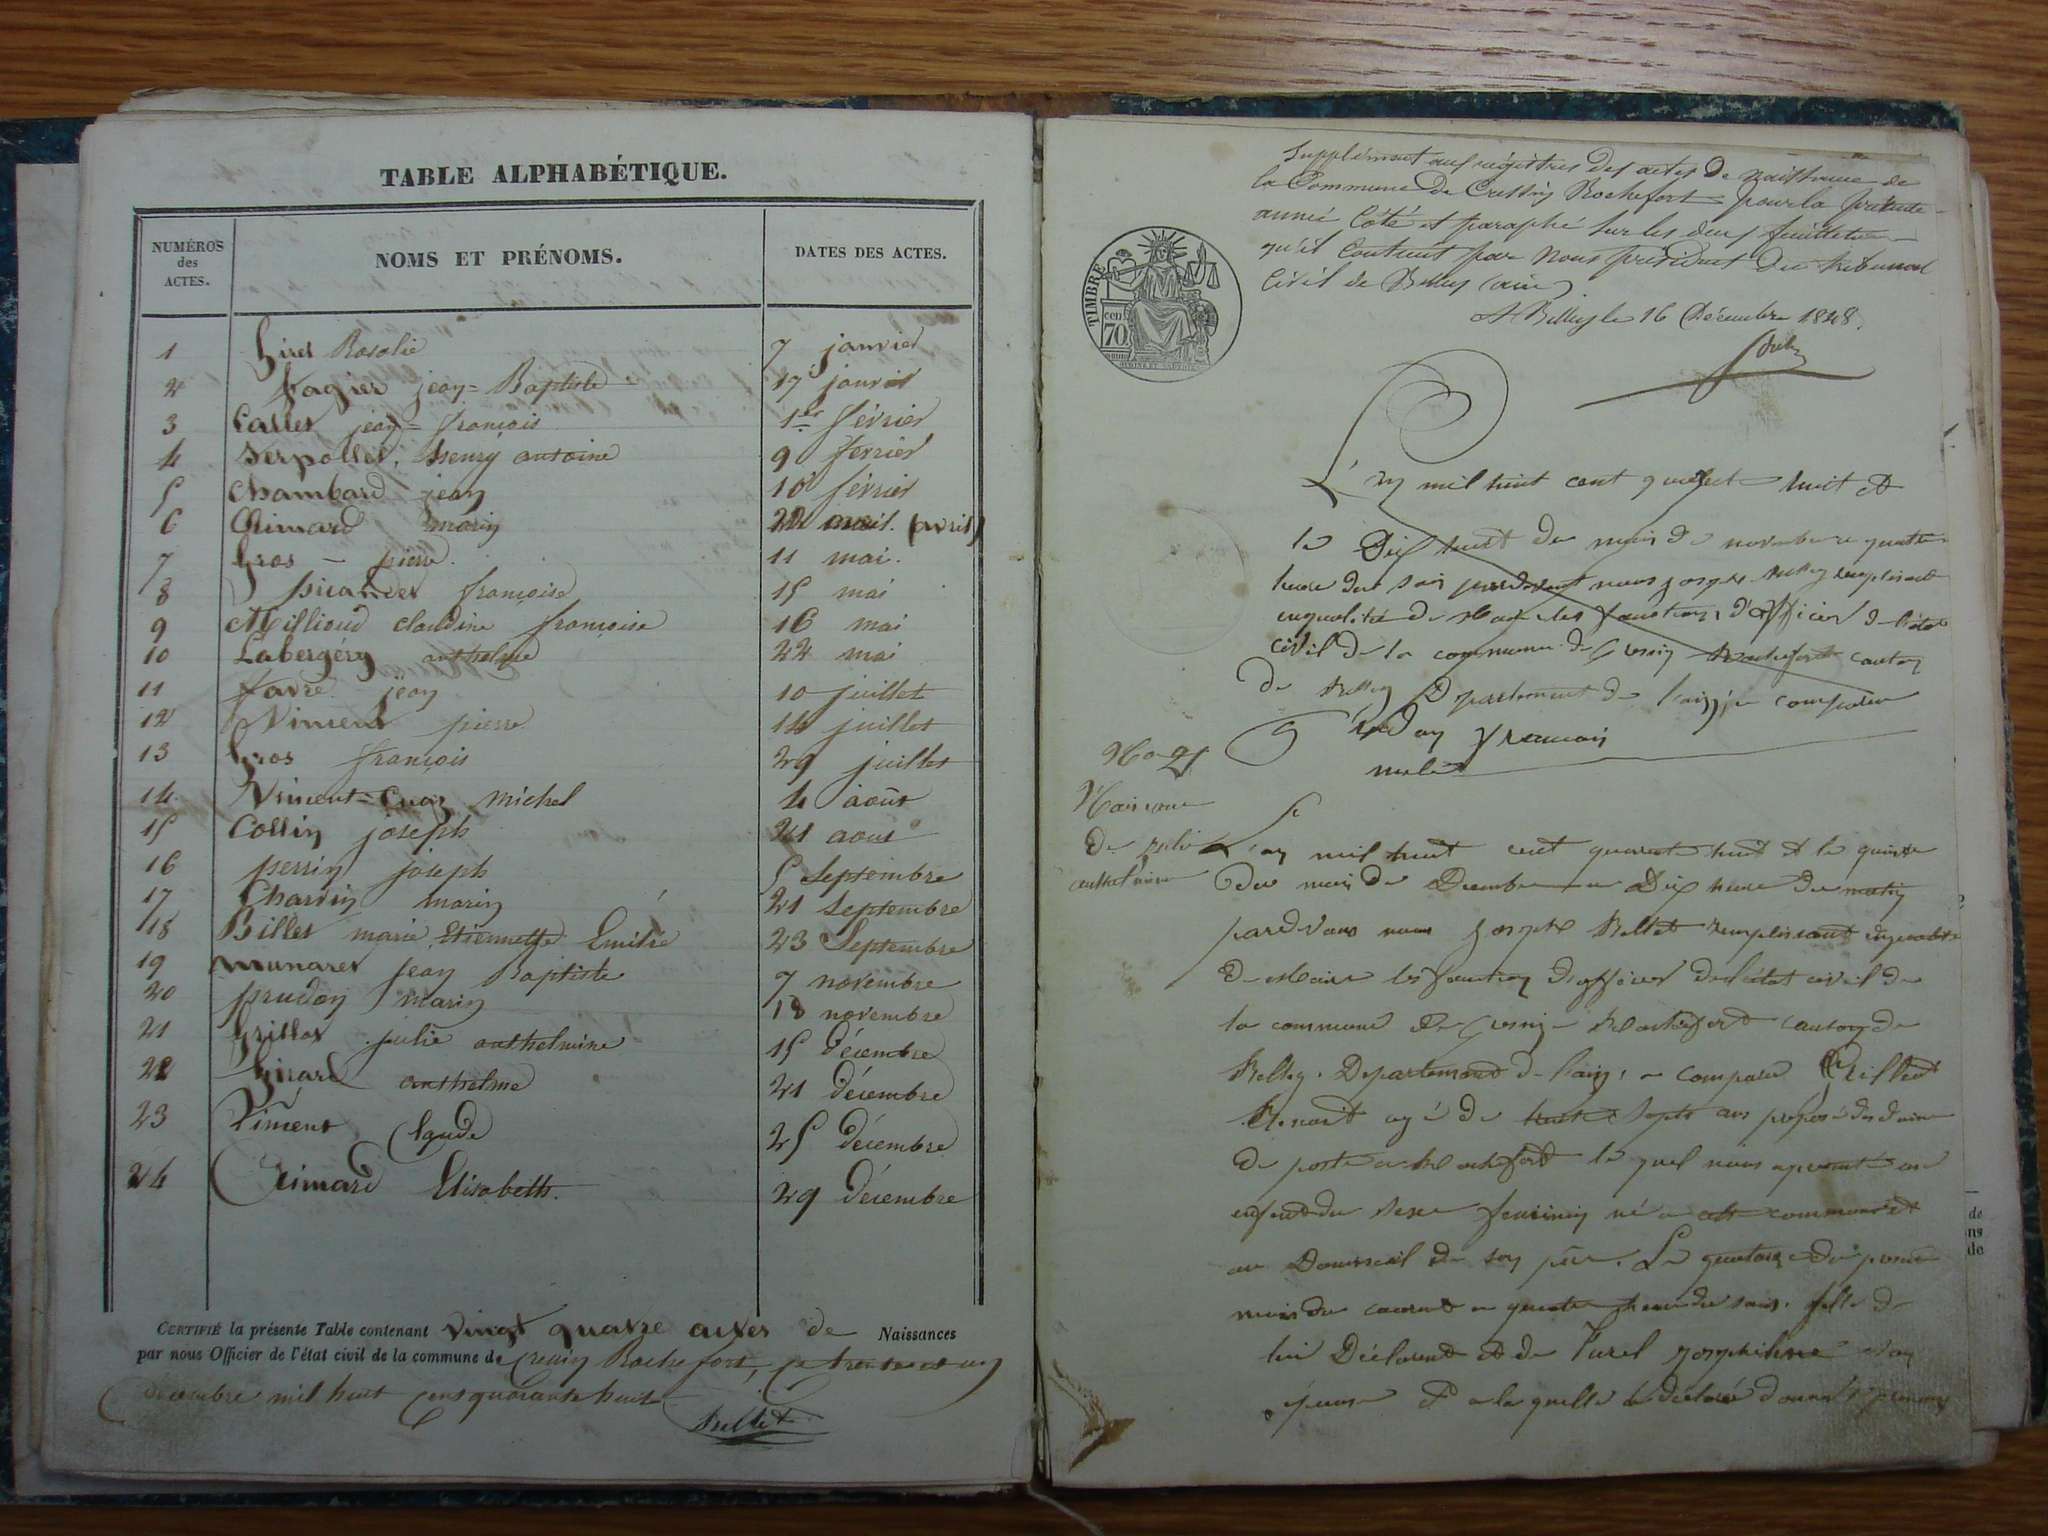 TABLE ALPHABÉTIQUE.
NUMÉROS des ACTES.
NOMS ET PRÉNOMS.
DATES DES ACTES.
1 Rosalie 7 janvier
2 jean=Baptiste 17 janvier
3 Callet jean=françois 1er février
4 Serpollet, henry antoine 9 février
5 Chambard jean 10 février
6 Grimard marin 22 avril (avril)
7 Gros - pierre. 11 mai.
8 françoise 15 mai
9 Millioud claudine françoise 16 mai
10 Labergéry anthelme 22 mai
11 favre jean 10 juillet
12 Viment pierre 14 juillet
13 Gros françois 29 juillet
14. Viment=Cuaz michel 4 août
15 Collin joseph 21 aout
16 perrin joseph 5 Septembre
17 Charvin marin 21 Septembre
18 Billet marie Etiennette Emilie 23 Septembre
19 munaret Jean Baptiste 7 novembre
20 prudon marin 18 novembre
21 Grillot julie anthelmine 15 décembre
22 Girard anthelme 21 décembre
23 Viment Claude 25 décembre
24 Grimard Elisabeth. 29 décembre
CERTIFIÉ la présente Table contenant vingt quatre actes de Naissances
par nous Officier de l'état civil de la commune de Cressin Rochefort, le trente et un
décembre mil huit cent quarante huit
Bellet
Supplément aux régistres des actes de naissance de
la Commune de Cressin Rochefort pour la présente
année Côté et paraphé sur les deux feuillets
qu'il Contient par Nous président du tribunal
Civil de Belley (ain)
A Belley le 16 Décembre 1848.
TIMBRE
70
L'an mil huit cent quarante huit et
le Dix huit du mois de novembre quatre
heure du soir pardevant nous joseph Bellet remplissant
en qualité de Maire les fonctions d'officier de l'état
civil de la commune de Cressin Rochefort canton
de Belley Département de l'ain, a comparu
Prudon françois
No 21
Naissance
de julie
anthelmine
L'an mil huit cent quarante huit et le quinze
du mois de Decembre a Dix heure du matin
pardevant nous joseph Bellet remplissant en qualité
de Maire les fonction d'officier de l'état civil de
la commune de Cressin Rochefort canton de
Belley. Departement de l'ain, a comparu Grillot
Benoit agé de sept ans préposé des douane
de poste a Rochefort le quel nous a presenté un
enfant du sexe feminin né a cette commune et
au Domicil de son père. Le quatorze du present
mois du courant a quatre heure du soir. fille de
lui Déclarent et de Turel josephine son
épouse et a la quelle il a déclaré donner les prenoms
de
ns
de